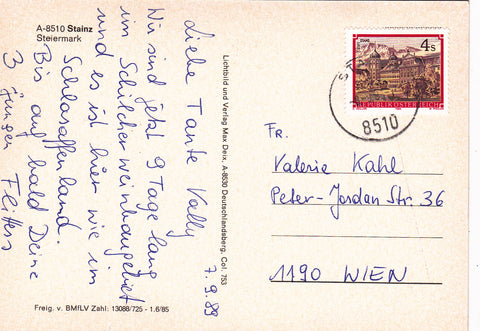 A-8510 Stainz
Steiermark
7.9.89
Liebe Tante Vally
Wir sind jetzt 9 Tage lang
im Schilcherweinbaugebiet
und es ist hier wie im
Schlaraffenland.
Bis auf bald Deine
3 jungen
Lichtbild und Verlag Max Deix, A-8530 Deutschlandsberg, Col. 753
4 S
REPUBLIK ÖSTERREICH
8510
Fr.
Valerie Kahl
Peter-Jordan Str. 36
1190 WIEN
Freig. v. BMfLV Zahl: 13088/725 - 1.6/85